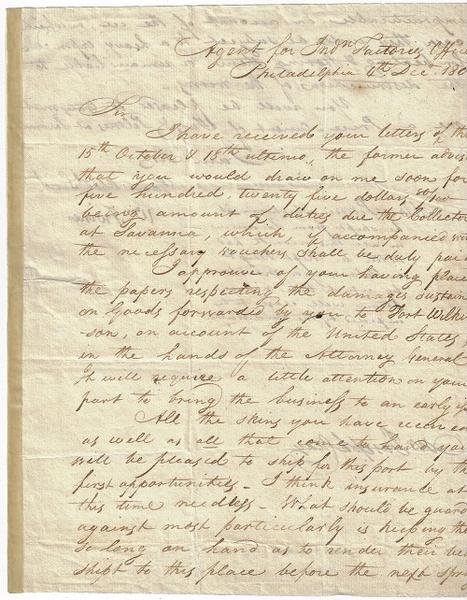 Agent for Indn Factories Office
Philadelphia 4th Dec. 180
Sir
I have received your letters of the
15th October & 18th ultimo, the former advis
that you would draw on me soon for
five hundred, twenty five dollars
being amount of duties due the Collector
at Savanna, which, if accompanied w
the necessary vouchers shall be duly paid
I approve of your having place
the papers respecting the damages sustain
on Goods forwarded by you to Fort Wilkin
-son, on account of the United States
in the hands of the Attorney General
It will require a little attention on your
part to bring the business to an early
All the skins you have received
as well as all that come to hand you
will be pleased to ship for this port by the
first opportunities - I think insurance at
this time needless - What should be guard
against most particularly is keeping the
so long on hand as to render their being
shipt to this place before the next spr